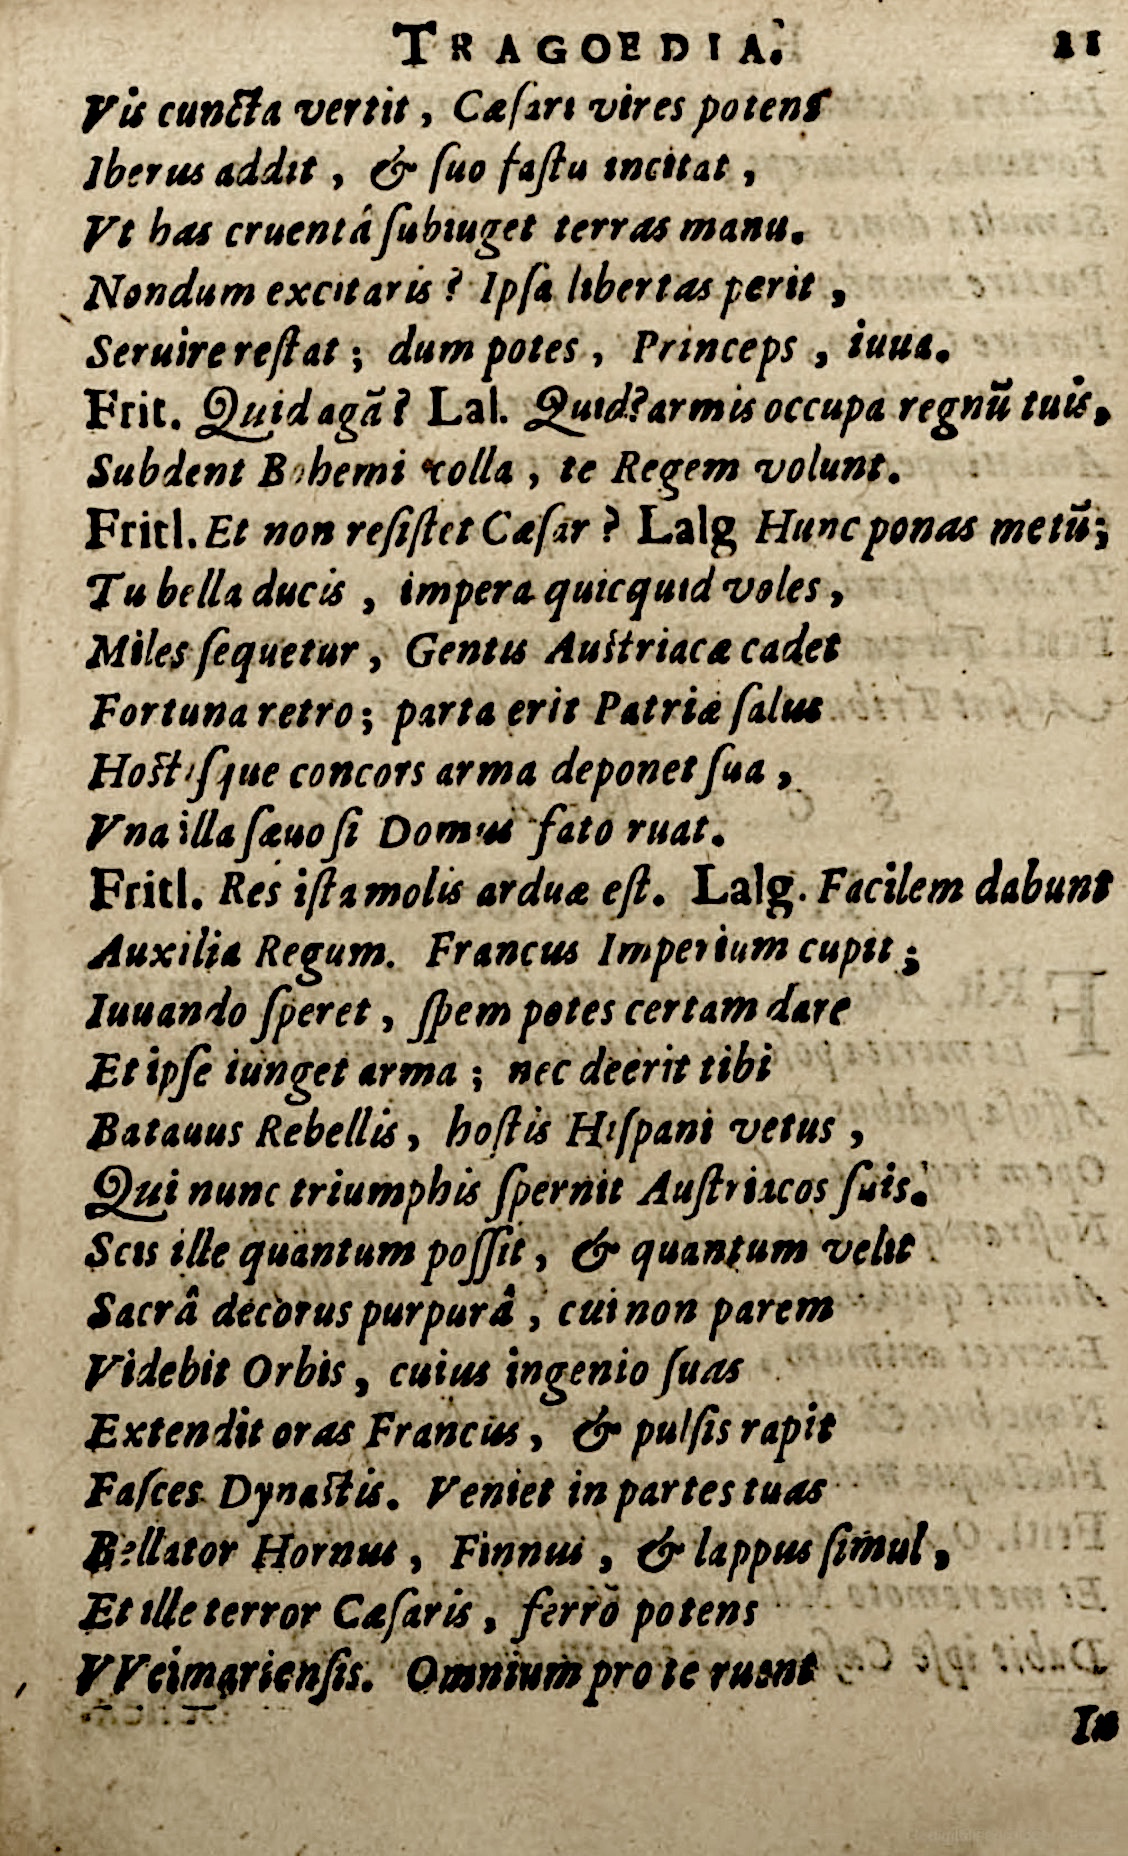 TRAGOEDIA. 21
Vis cuncta vertit, Cæſari vires potens
Iberus addit, & ſuo faſtu incitat,
Vt has cruentâ ſubiuget terras manu.
Nondum excitaris? Ipſa libertas perit,
Seruire reſtat; dum potes, Princeps, iuua.
Frit. Quid agã? Lal. Quid? armis occupa regnũ tuis,
Subdent Bohemi colla, te Regem volunt.
Fritl. Et non reſiſtet Cæſar? Lalg Hunc ponas metũ;
Tu bella ducis, impera quicquid voles,
Miles ſequetur, Gentis Auſtriacæ cadet
Fortuna retro; parta erit Patriæ ſalus
Hoſtiſque concors arma deponet ſua,
Vna illa ſæuo ſi Domus fato ruat.
Fritl. Res iſta molis arduæ eſt. Lalg. Facilem dabunt
Auxilia Regum. Francus Imperium cupit;
Iuuando ſperet, ſpem potes certam dare
Et ipſe iunget arma; nec deerit tibi
Batauus Rebellis, hoſtis Hiſpani vetus,
Qui nunc triumphis ſpernit Auſtriacos ſuis.
Scis ille quantum poſſit, & quantum velit
Sacrâ decorus purpurâ, cui non parem
Videbit Orbis, cuius ingenio ſuas
Extendit oras Francus, & pulſis rapit
Faſces Dynaſtis. Veniet in partes tuas
Bellator Hornus, Finnus, & lappus ſimul,
Et ille terror Cæſaris, ferrõ potens
VVeimarienſis. Omnium pro te ruent
In